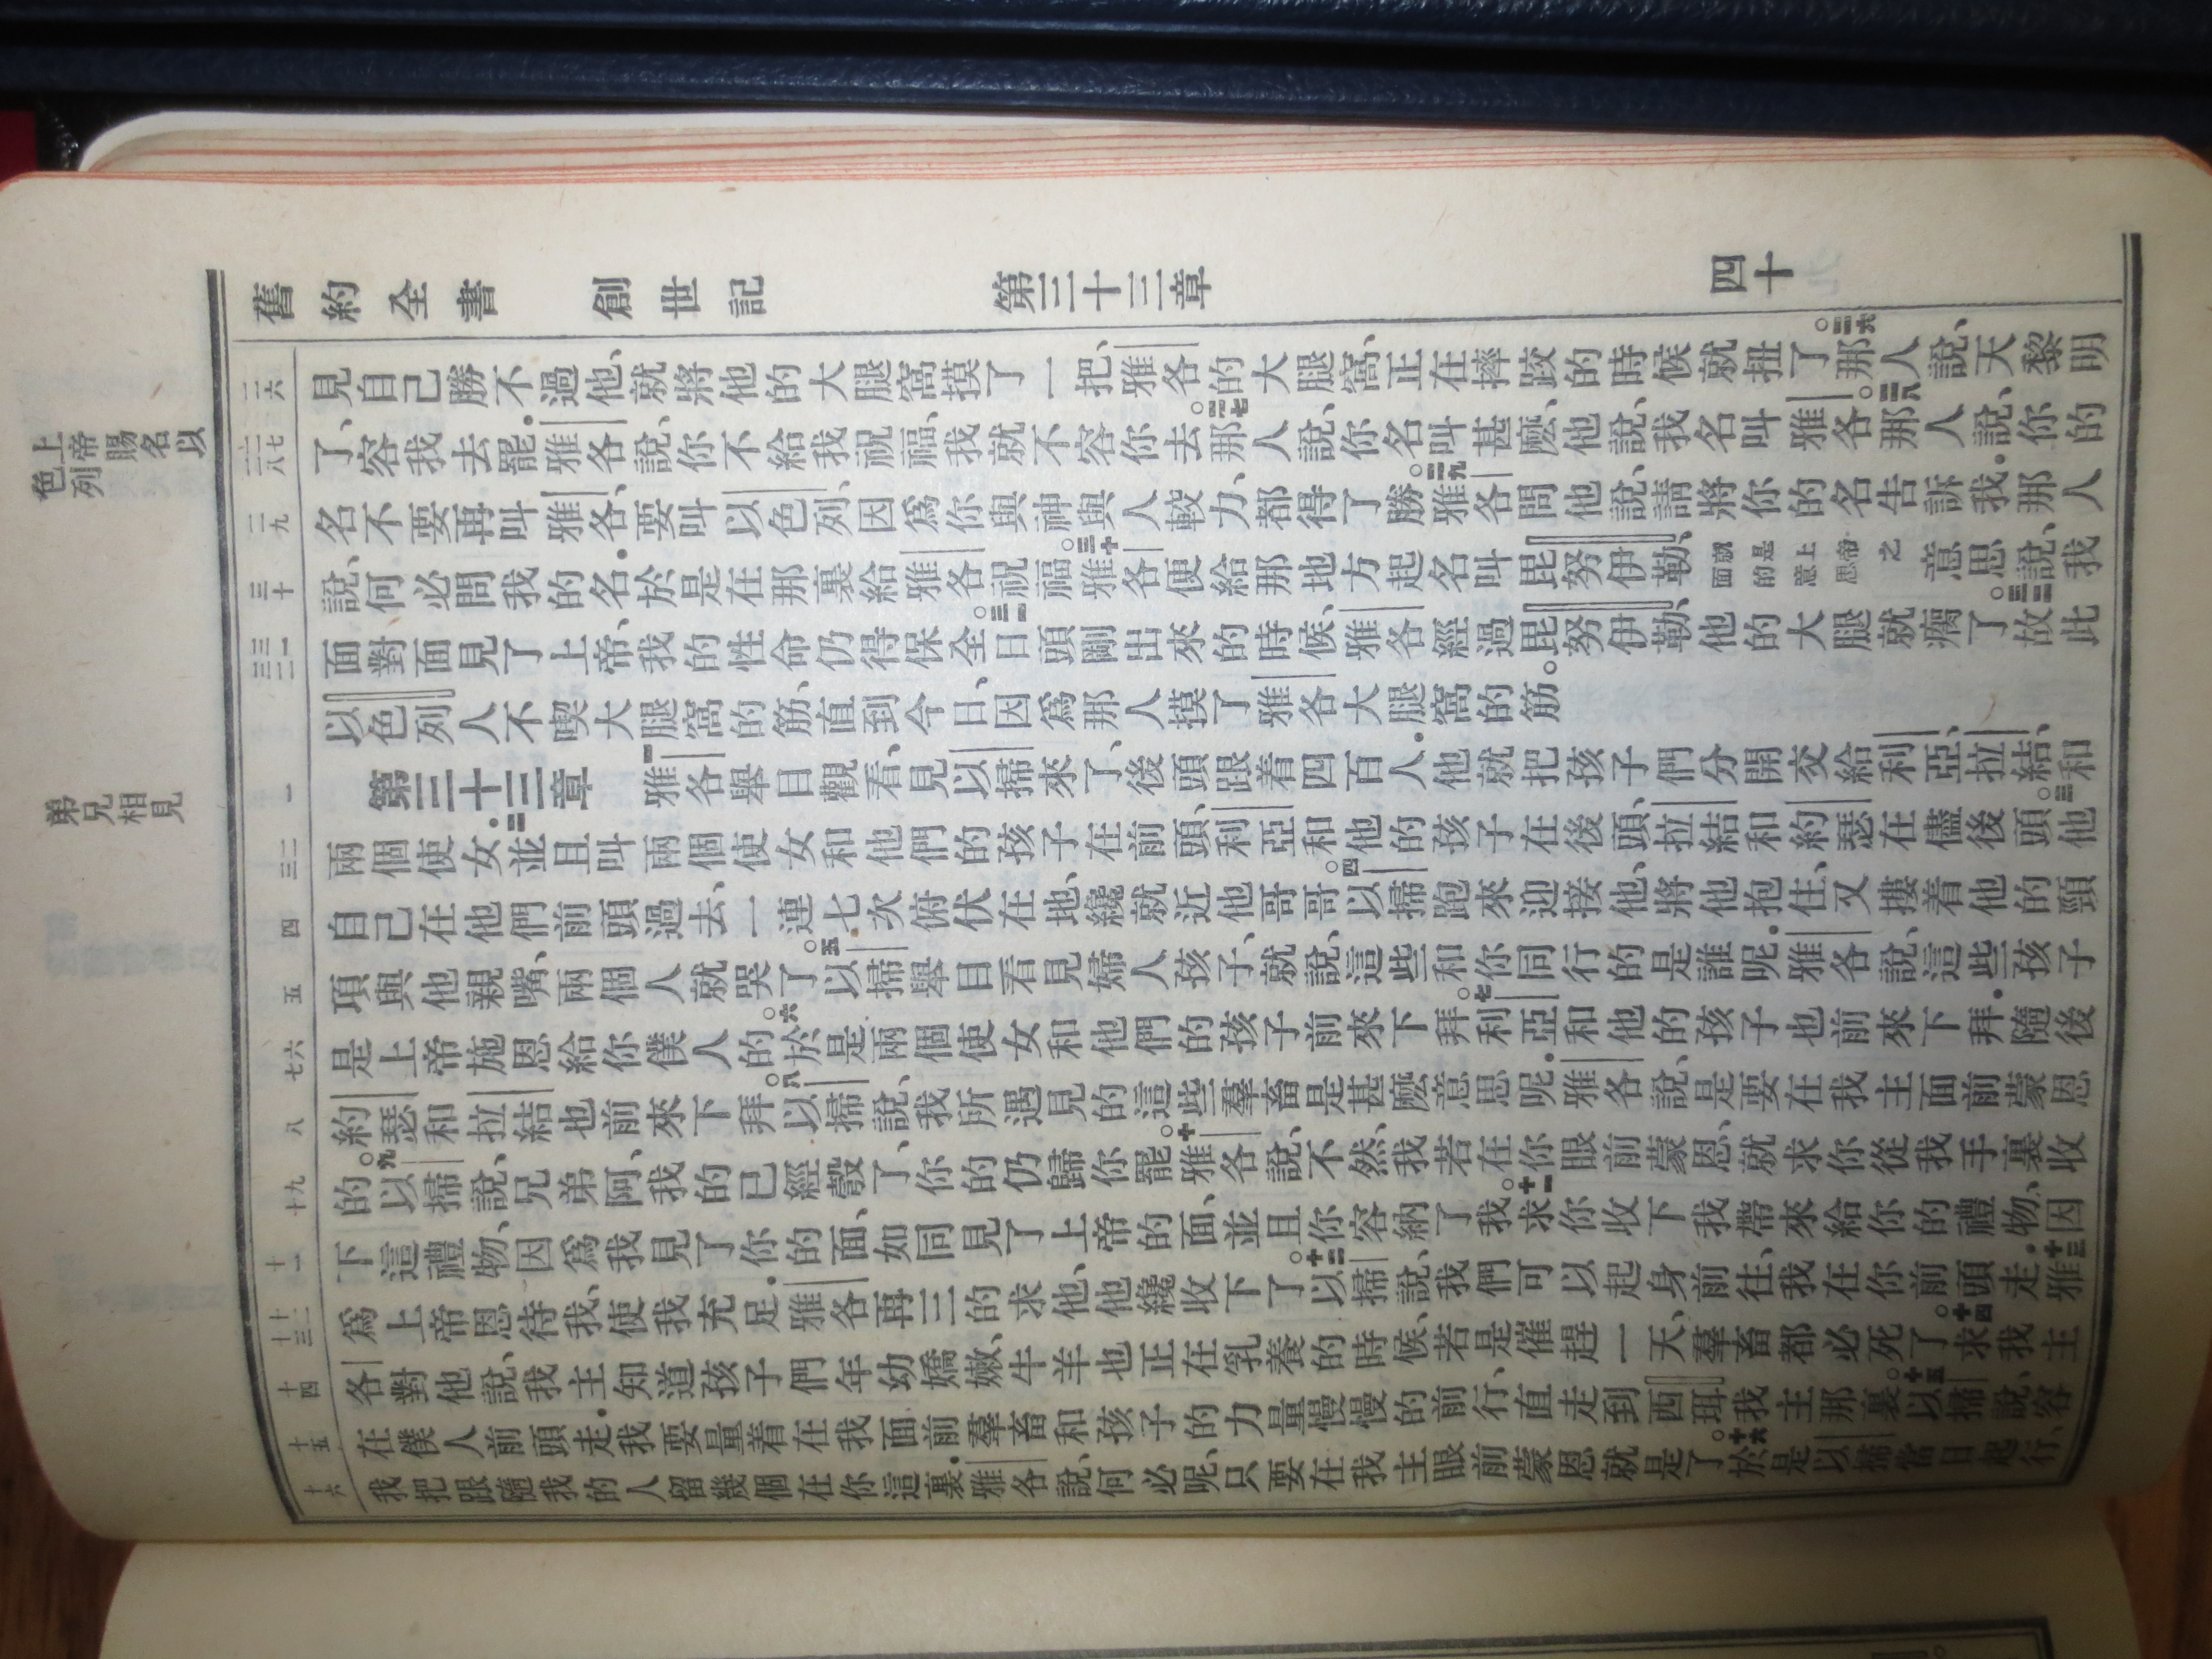 舊約全書 創世記 第三十三章 四十
見自己勝不過他、就將他的大腿窩摸了一把、雅各的大腿窩、正在摔跤的時候就扭了。二六那人說、天黎明
了、容我去罷.雅各說、你不給我祝福、我就不容你去。二七那人說、你名叫甚麽、他說、我名叫雅各。二八那人說、你的
名不要再叫雅各、要叫以色列、因爲你與神與人較力、都得了勝。二九雅各問他說、請將你的名告訴我.那人
說、何必問我的名.於是在那裏給雅各祝福。三十雅各便給那地方起名叫毘努伊勒、就是上帝之面的意思意思說、我
面對面見了上帝、我的性命仍得保全。三一日頭剛出來的時候、雅各經過毘努伊勒、他的大腿就瘸了。三二故此
以色列人不喫大腿窩的筋、直到今日、因爲那人摸了雅各大腿窩的筋。
第三十三章 一雅各舉目觀看、見以掃來了、後頭跟着四百人.他就把孩子們分開交給利亞、拉結、和
兩個使女.二並且叫兩個使女和他們的孩子在前頭、利亞和他的孩子在後頭、拉結和約瑟在儘後頭。三他
自己在他們前頭過去、一連七次俯伏在地、纔就近他哥哥。四以掃跑來迎接他、將他抱住、又摟着他的頸
項、與他親嘴、兩個人就哭了。五以掃舉目看見婦人孩子、就說、這些和你同行的是誰呢.雅各說、這些孩子
是上帝施恩給你僕人的。六於是兩個使女和他們的孩子前來下拜。七利亞和他的孩子也前來下拜.隨後
約瑟和拉結也前來下拜。八以掃說、我所遇見的這些羣畜是甚麽意思呢.雅各說、是要在我主面前蒙恩
的。九以掃說、兄弟阿、我的已經彀了、你的仍歸你罷。十雅各說、不然、我若在你眼前蒙恩、就求你從我手裏收
下這禮物、因爲我見了你的面、如同見了上帝的面、並且你容納了我。十一求你收下我帶來給你的禮物、因
爲上帝恩待我、使我充足.雅各再三的求他、他纔收下了。十二以掃說、我們可以起身前往、我在你前頭走.十三雅
各對他說、我主知道孩子們年幼嬌嫩、牛羊也正在乳養的時候、若是催趕一天、羣畜都必死了。十四求我主
在僕人前頭走.我要量着在我面前羣畜和孩子的力量慢慢的前行、直走到西珥我主那裏。十五以掃說、容
我把跟隨我的人留幾個在你這裏.雅各說、何必呢、只要在我主眼前蒙恩就是了。十六於是以掃當日起行、
二六
二七
二八
二九
三十
三一
三二
一
二
三
四
五
六
七
八
九
十
十一
十二
十三
十四
十五
十六
上帝賜名以
色列
弟兄相見